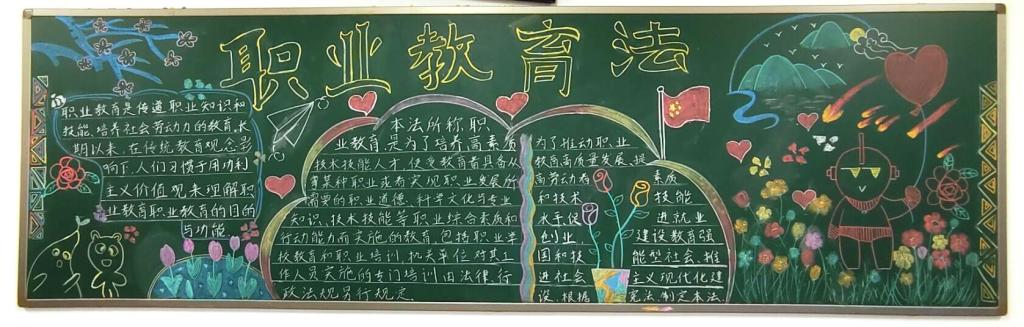 职业教育法
职业教育是传道职业知识和
技能,培养社会劳动力的教育,长
期以来,在传统教育观念影
响下,人们习惯于用功利
主义价值观来理解职
业教育职业教育的目的
与功能.
本法所称职
业教育,是为了培养高素质
技术技能人才,使受教育者具备从
事某种职业或者实现职业发展所
需要的职业道德、科学文化与专业
知识、技术技能等职业综合素质和
行动能力而实施的教育,包括职业学
校教育和职业培训.机关单位对其工
作人员实施的专门培训由法律、行
政法规另行规定.
为了推动职业
教育高质量发展、提
高劳动者素质
和技术技能
水平促进就业
创业,建设教育强
国和技能型社会、推
进社会主义现代化建
设、根据宪法,制定本法.